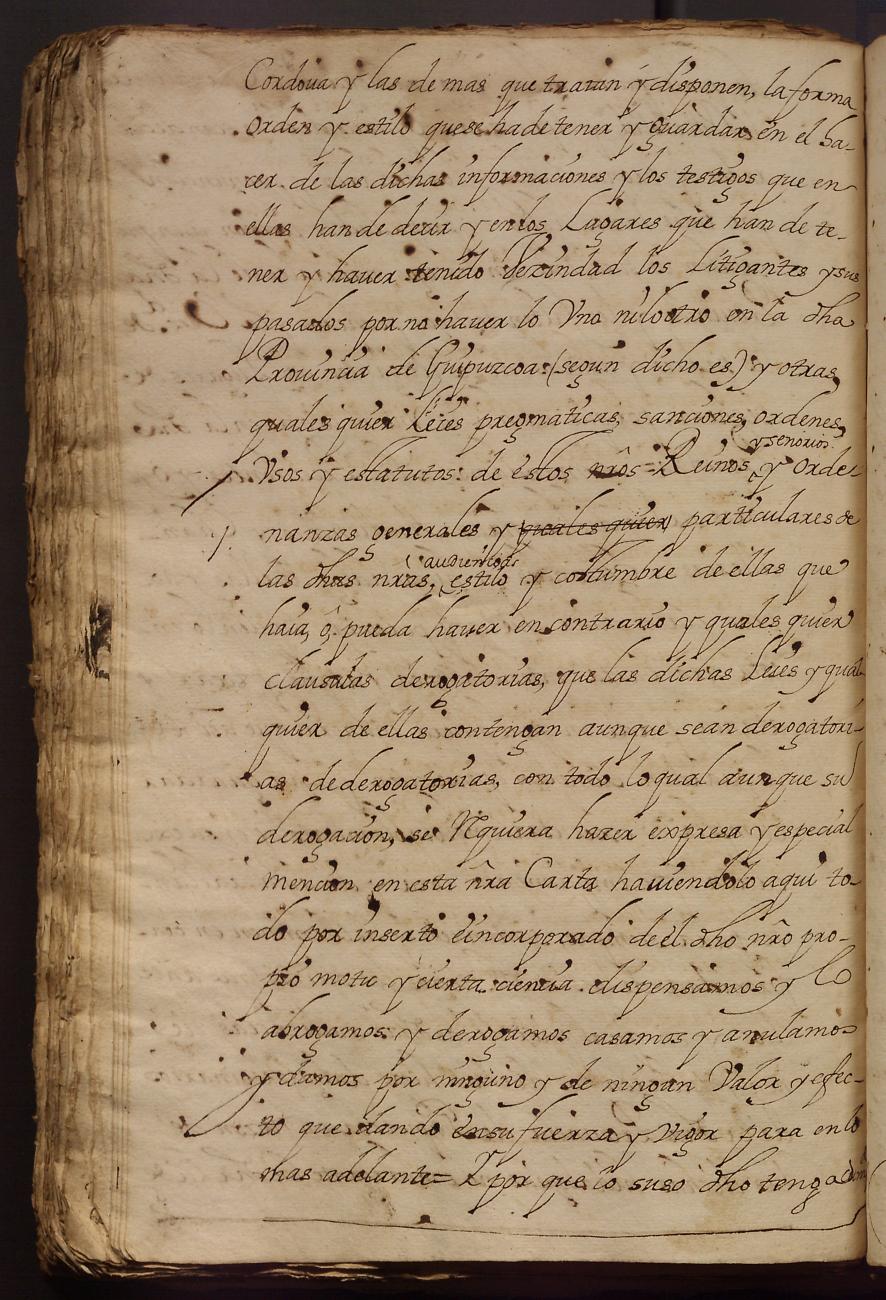 Cordoua y las de mas que tratan y disponen, la forma
orden y estilo que se ha de tener y guardar en el ha-
cer de las dichas informaciones y los testigos que en
ellas han de dezir y en los Lugares que han de te-
ner y hauer tenido Vezindad los Litigantes y sus
pasados por no hauer lo Vno ni lo otro en la dha
Prouincia de Guipuzcoa (segun dicho es) y otras
quales quier Leies pregmaticas, sanciones, ordenes,
y senorios
Vsos y estatutos: de estos nros Reinos y Orde-
nanzas generales y quales quier particulares de
audiencias
las dhas nras, estilo y costumbre de ellas que
haia, ô pueda hauer en contrario y quales quier
clausulas derogatorias, que las dichas Leies y qual
quier de ellas contengan aunque sean derogatori-
as de derogatorias, con todo lo qual aunque su
derogacion, se Rquiera hazer expresa y especial
mencion en esta nra Carta hauiendolo aqui to-
do por inserto e incorporado de el dho nro pro-
prio motu y cierta ciencia dispensamos y lo
abrogamos y derogamos casamos y anulamos
y damos por ninguno y de ningun Valor y efec-
to quedando en su fuerza y vigor para en lo
mas adelante= Y por que lo suso dho tenga